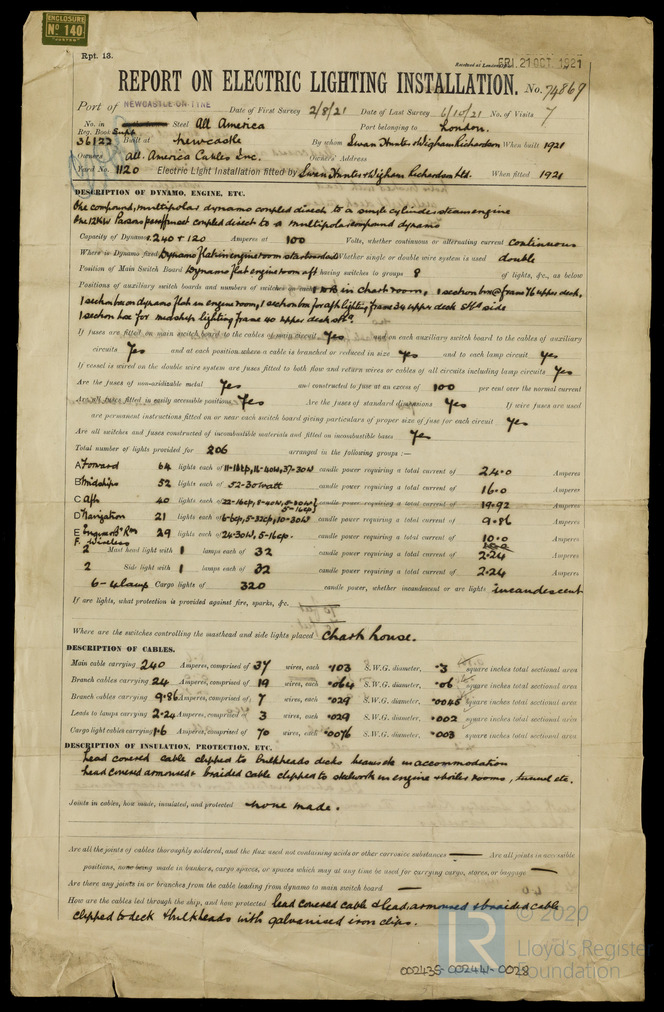 ENCLOSURE
No 140
Rpt. 13.
Received at London FRI. 21 OCT. 1921
REPORT ON ELECTRIC LIGHTING INSTALLATION. No. 74869
Port of NEWCASTLE-ON-TYNE Date of First Survey 2/8/21 Date of Last Survey 6/10/21 No. of Visits 7
No. in Reg. Book Supp 36122 Steel All America Port belonging to London.
Built at Newcastle By whom Swan Hunter & Wigham Richardson When built 1921
Owners All. America Cables Inc. Owners' Address
Yard No. 1120 Electric Light Installation fitted by Swan Hunter & Wigham Richardson Ltd. When fitted 1921
DESCRIPTION OF DYNAMO, ENGINE, ETC.
One compound, multipolar dynamo coupled direct to a single cylinder steam engine
One 12KW Parsons coupled direct to a multipolar compound dynamo
Capacity of Dynamo 240 + 120 Amperes at 100 Volts, whether continuous or alternating current continuous
Where is Dynamo fixed Dynamo flat in engine room starboard Whether single or double wire system is used double
Position of Main Switch Board Dynamo flat engine room aft having switches to groups 8 of lights, &c., as below
Positions of auxiliary switch boards and numbers of switches on each in chart room, 1 section box @ frame 76 upper deck,
1 section box on dynamo flat in engine room, 1 section box for aft lighting frame 34 upper deck stbd side
1 section box for midship lighting frame 40 upper deck
If fuses are fitted on main switch board to the cables of main circuit Yes and on each auxiliary switch board to the cables of auxiliary
circuits Yes and at each position where a cable is branched or reduced in size Yes and to each lamp circuit Yes
If vessel is wired on the double wire system are fuses fitted to both flow and return wires or cables of all circuits including lamp circuits Yes
Are the fuses of non-oxidizable metal Yes and constructed to fuse at an excess of 100 per cent over the normal current
Are all fuses fitted in easily accessible positions Yes Are the fuses of standard dimensions Yes If wire fuses are used
are permanent instructions fitted on or near each switch board giving particulars of proper size of fuse for each circuit Yes
Are all switches and fuses constructed of incombustible materials and fitted on incombustible bases Yes
Total number of lights provided for 206 arranged in the following groups :—
A Forward 64 lights each of 11-16cp, 16-40W, 37-30W candle power requiring a total current of 24.0 Amperes
B Midships 52 lights each of 52-30 watt candle power requiring a total current of 16.0 Amperes
C Aft 40 lights each of 22-16cp, 8-40W, 5-30W 5-16cp candle power requiring a total current of 19.92 Amperes
D Navigation 21 lights each of 6-6cp, 5-32cp, 10-30W candle power requiring a total current of 9.86 Amperes
E Engine & Br Rm 29 lights each of 24-30W, 5-16cp. candle power requiring a total current of 10.0 Amperes
F. Wireless
2 Mast head light with 1 lamps each of 32 candle power requiring a total current of 2.24 Amperes
2 Side light with 1 lamps each of 32 candle power requiring a total current of 2.24 Amperes
6-4 lamp Cargo lights of 320 candle power, whether incandescent or arc lights incandescent
If arc lights, what protection is provided against fire, sparks, &c.
Where are the switches controlling the masthead and side lights placed Chart house.
DESCRIPTION OF CABLES.
Main cable carrying 240 Amperes, comprised of 37 wires, each .103 S.W.G. diameter, .3 square inches total sectional area
Branch cables carrying 24 Amperes, comprised of 19 wires, each .064 S.W.G. diameter, .06 square inches total sectional area
Branch cables carrying 9.86 Amperes, comprised of 7 wires, each .029 S.W.G. diameter, .0045 square inches total sectional area
Leads to lamps carrying 2.24 Amperes, comprised of 3 wires, each .029 S.W.G. diameter, .002 square inches total sectional area
Cargo light cables carrying 1.6 Amperes, comprised of 70 wires, each .0076 S.W.G. diameter, .003 square inches total sectional area
DESCRIPTION OF INSULATION, PROTECTION, ETC.
Lead covered cable clipped to bulkheads decks beams etc in accommodation
Lead covered armoured & braided cable clipped to steelwork in engine & boiler rooms, tunnel etc.
Joints in cables, how made, insulated, and protected none made.
Are all the joints of cables thoroughly soldered, and the flux used not containing acids or other corrosive substances — Are all joints in accessible
positions, none being made in bunkers, cargo spaces, or spaces which may at any time be used for carrying cargo, stores, or baggage —
Are there any joints in or branches from the cable leading from dynamo to main switch board —
How are the cables led through the ship, and how protected lead covered cable & lead, armoured & braided cable
clipped to deck & bulkheads with galvanised iron clips.
© 2020
LR
Lloyd's Register
Foundation
002435-002441-0028